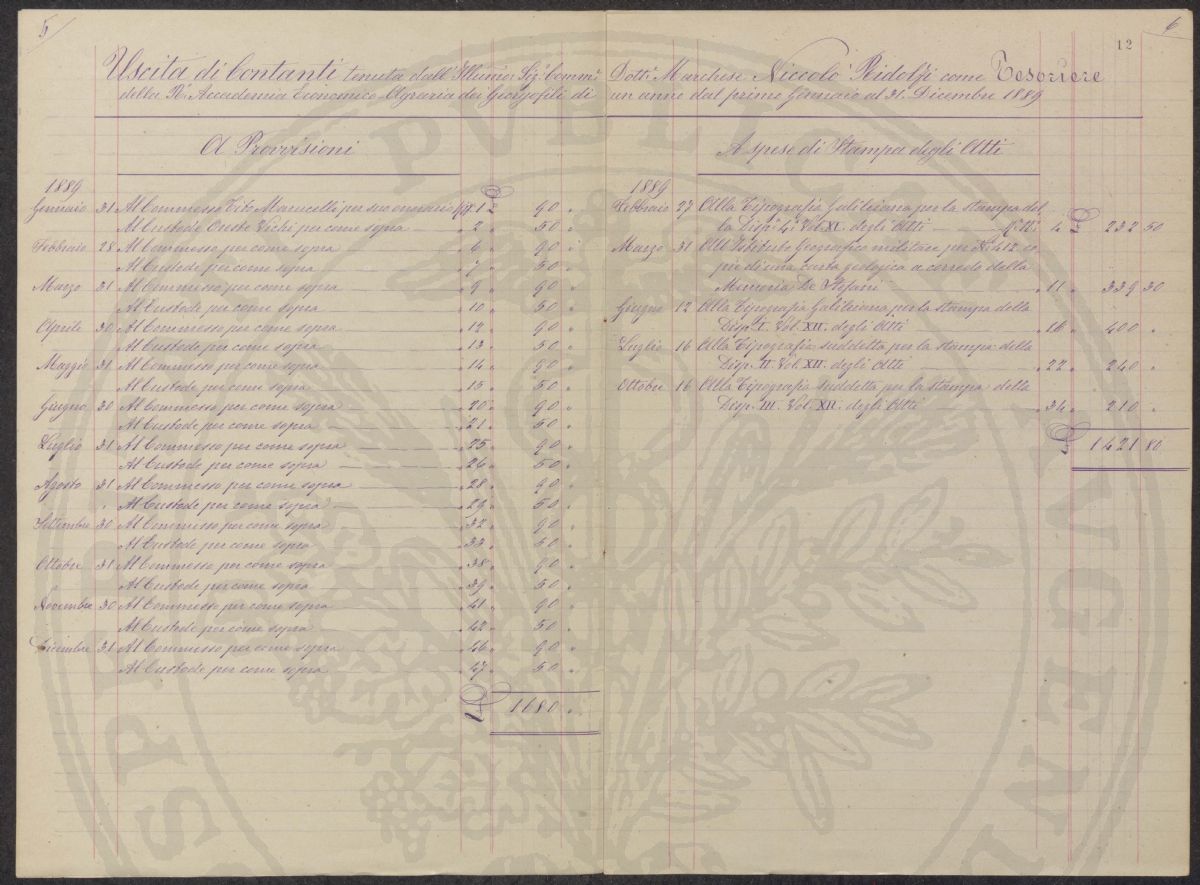 5
Uscita di Contanti tenuta dall' Illmo. Sig. Comm.
della R. Accademia Economico-Agraria dei Georgofili di
A Provvisioni
1889
Gennaio 31 Al Commesso Tito Marucelli per suo onorario 1 £ 90 "
Al Custode Oreste Vichi per come sopra " 2 " 50 "
Febbraio 28 Al Commesso per come sopra " 6 " 90 "
Al Custode per come sopra " 7 " 50 "
Marzo 31 Al Commesso per come sopra " 9 " 90 "
Al Custode per come sopra " 10 " 50 "
Aprile 30 Al Commesso per come sopra " 12 " 90 "
Al Custode per come sopra " 13 " 50 "
Maggio 31 Al Commesso per come sopra " 14 " 90 "
Al Custode per come sopra " 15 " 50 "
Giugno 30 Al Commesso per come sopra " 20 " 90 "
Al Custode per come sopra " 21 " 50 "
Luglio 31 Al Commesso per come sopra " 25 " 90 "
Al Custode per come sopra " 26 " 50 "
Agosto 31 Al Commesso per come sopra " 28 " 90 "
" Al Custode per come sopra " 29 " 50 "
Settembre 30 Al Commesso per come sopra " 32 " 90 "
Al Custode per come sopra " 33 " 50 "
Ottobre 31 Al Commesso per come sopra " 38 " 90 "
" Al Custode per come sopra " 39 " 50 "
Novembre 30 Al Commesso per come sopra " 41 " 90 "
Al Custode per come sopra " 42 " 50 "
Dicembre 31 Al Commesso per come sopra " 46 " 90 "
Al Custode per come sopra " 47 " 50 "
£ 1680 "
6
12
Dott. Marchese Niccolò Ridolfi come Tesoriere
un anno dal primo Gennaio al 31. Dicembre 1889
A spese di Stampa degli Atti
1889
Febbraio 27 Alla Tipografia Galileiana per la stampa del
la Disp. 4. Vol. XI. degli Atti 4 £ 232 50
Marzo 31 Allo Istituto Geografico militare per N. 412 co
pie di una carta geologica a corredo della
Memoria De Stefani " 11 " 339 30
Giugno 12 Alla Tipografia Galileiana per la stampa della
Disp. I. Vol. XII. degli Atti " 16 " 400 "
Luglio 16 Alla Tipografia suddetta per la stampa della
Disp. II. Vol. XII. degli Atti " 22 " 240 "
Ottobre 16 Alla Tipografia suddetta per la stampa della
Disp. III. Vol. XII. degli Atti " 34 " 210 "
£ 1421 80